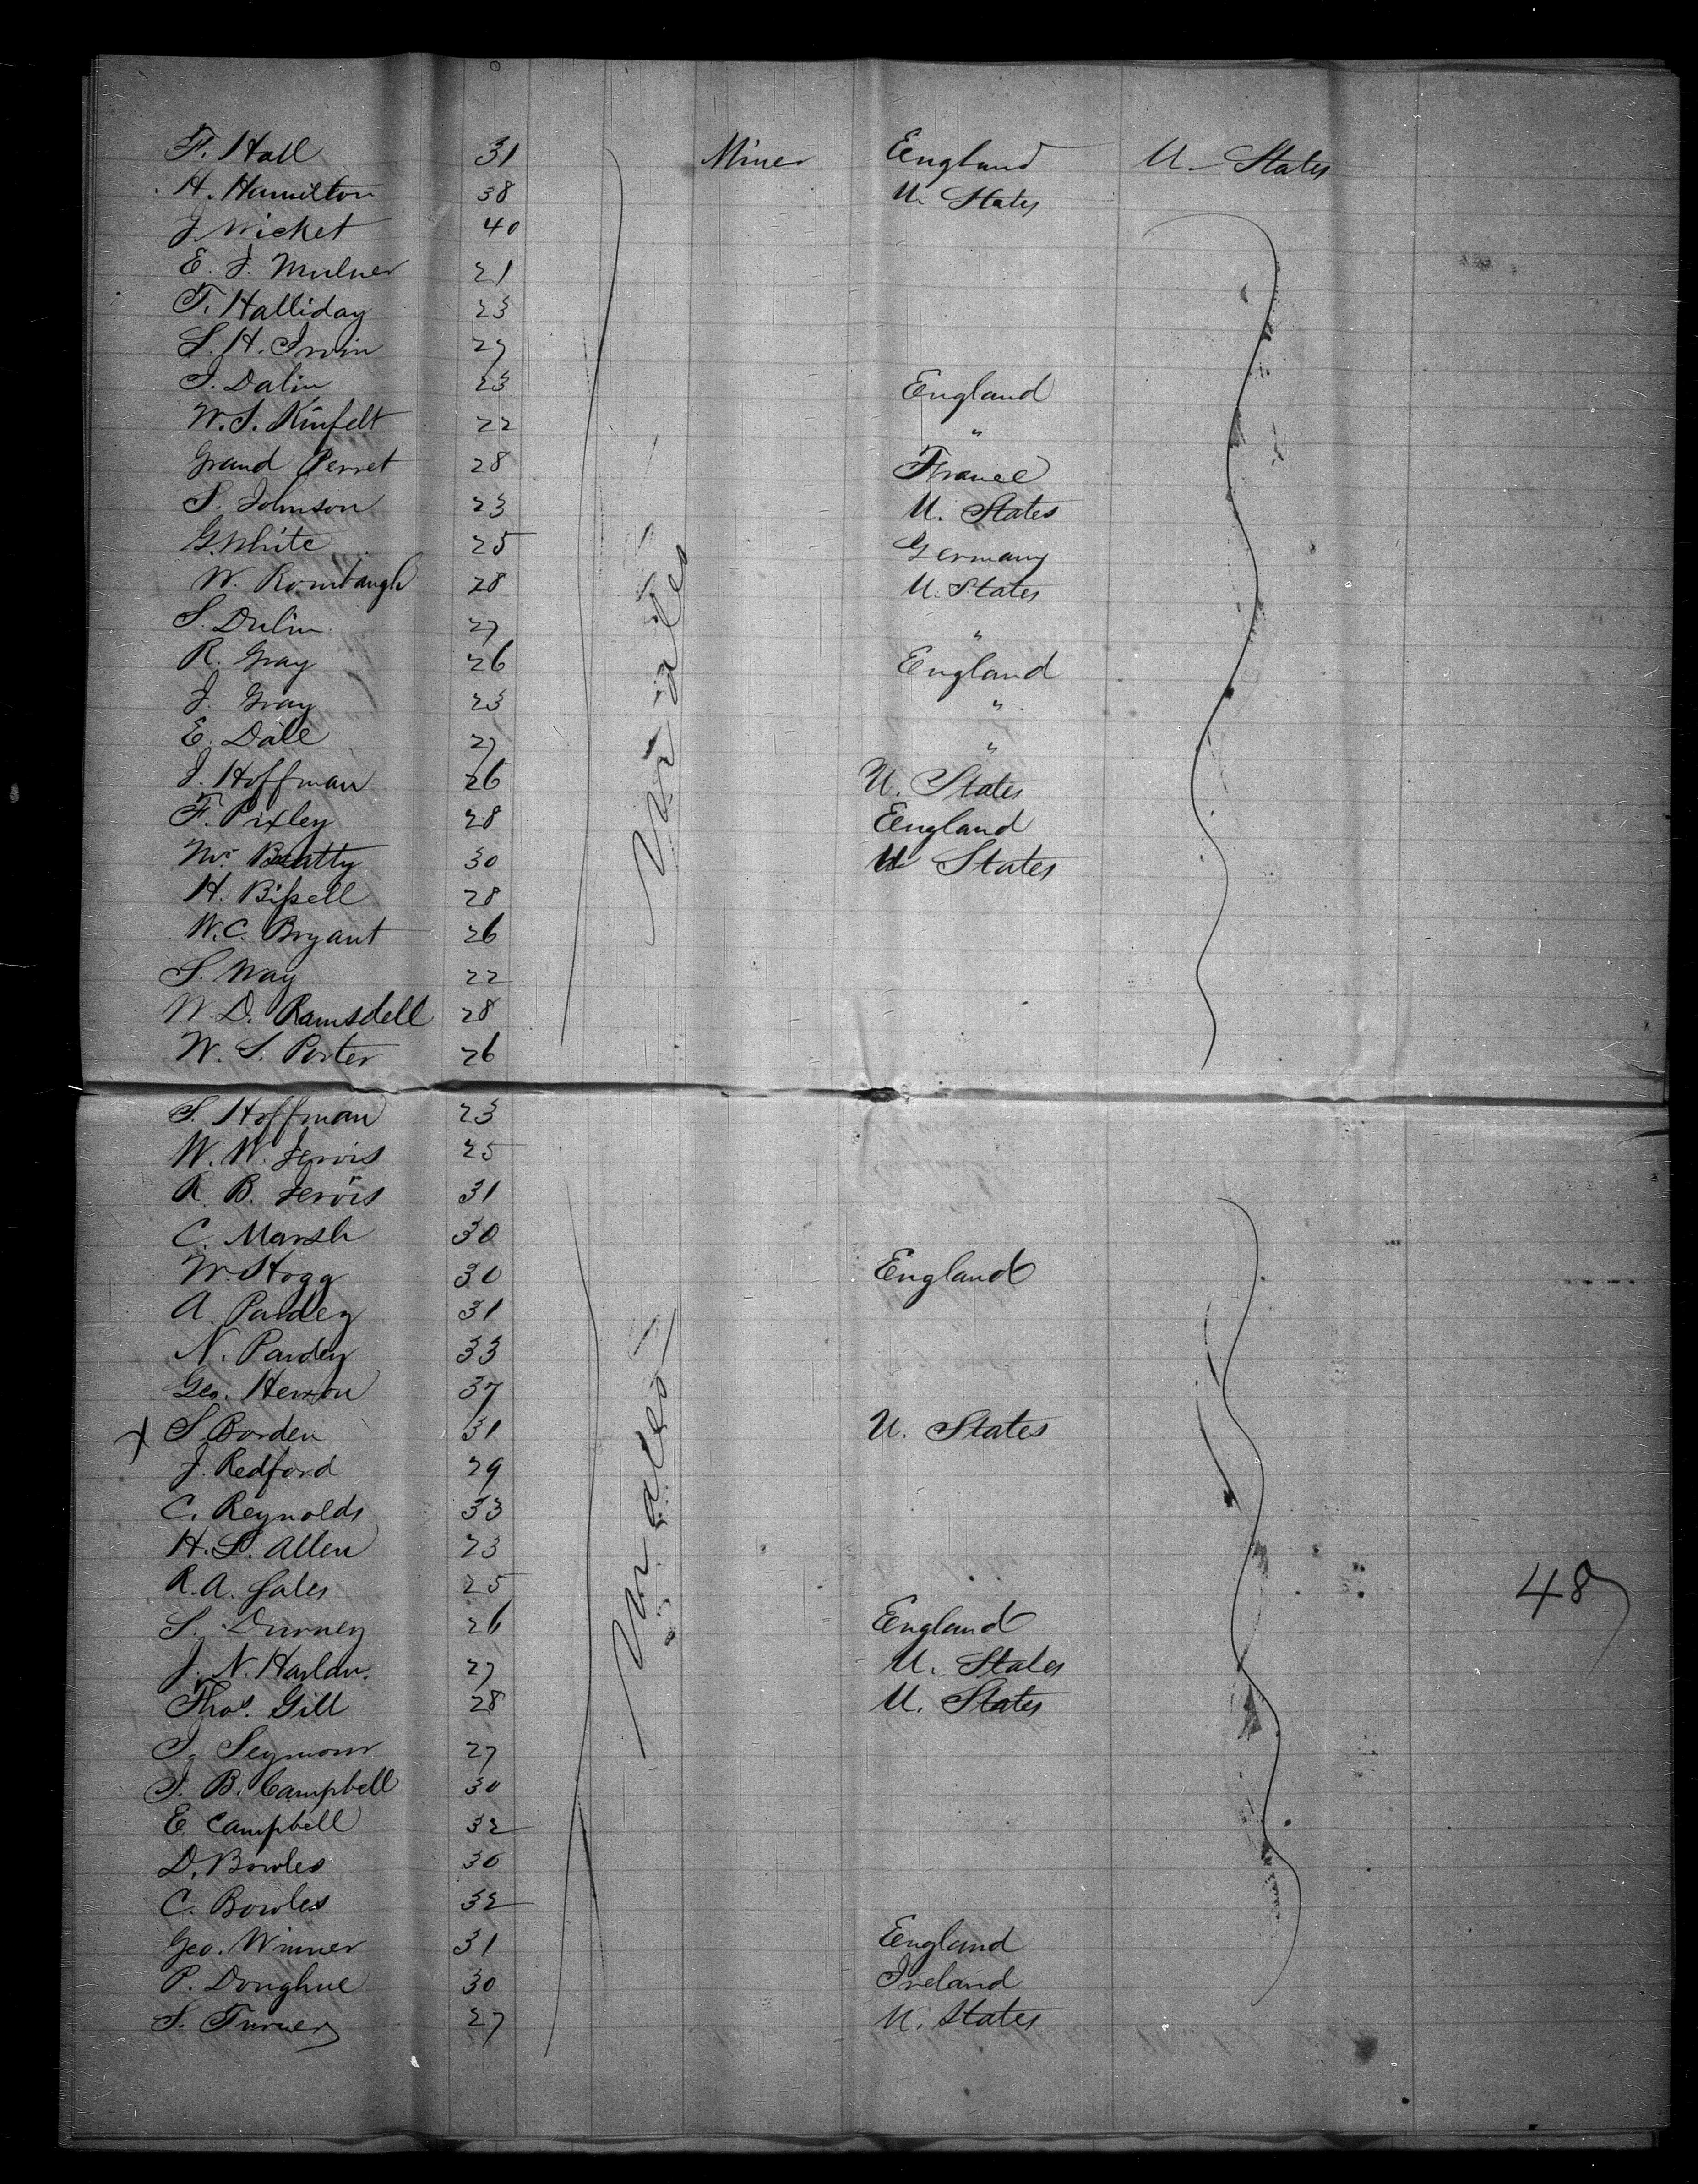 F. Hall 31 Miner England U. States
H. Hamilton 38 U. States
J. Wicket 40
E. J. Mulner 21
T. Halliday 23
S. H. Irwin 27
J. Dalin 23 England
W. S. Kinfelt 22 "
Grand Perret 28 France
S. Johnson 23 U. States
G. White 25 Germany
W. Rombaugh 28 U. States
S. Dulin 27 "
R. Gray 26 England
J. Gray 23 "
E. Dale 27 "
J. Hoffman 26 U. States
F. Pixley 28 England
Beatty 30 U States
H. Bissell 28
W. C. Bryant 26
S. Way 22
W. D. Ramsdell 28
W. S. Porter 26
Males
S. Hoffman 23
W. W. Jervis 25
R. B. Jervis 31
C. Marsh 30
W. Hogg 30 England
A. Pardey 31
N. Pardey 33
Geo. Herron 37
x S. Borden 31 U. States
J. Redford 29
C. Reynolds 33
H. S. Allen 23
R. A. Gales 25
S. Durney 26 England
J. N. Harlan. 27 U. States
Thos. Gill 28 U. States
J. Seymour 27
J. B. Campbell 30
E Campbell 32
D. Bowles 30
C. Bowles 32
Geo. Winner 31 England
P. Donghue 30 Ireland
S. Turner 27 U. States
Males
48